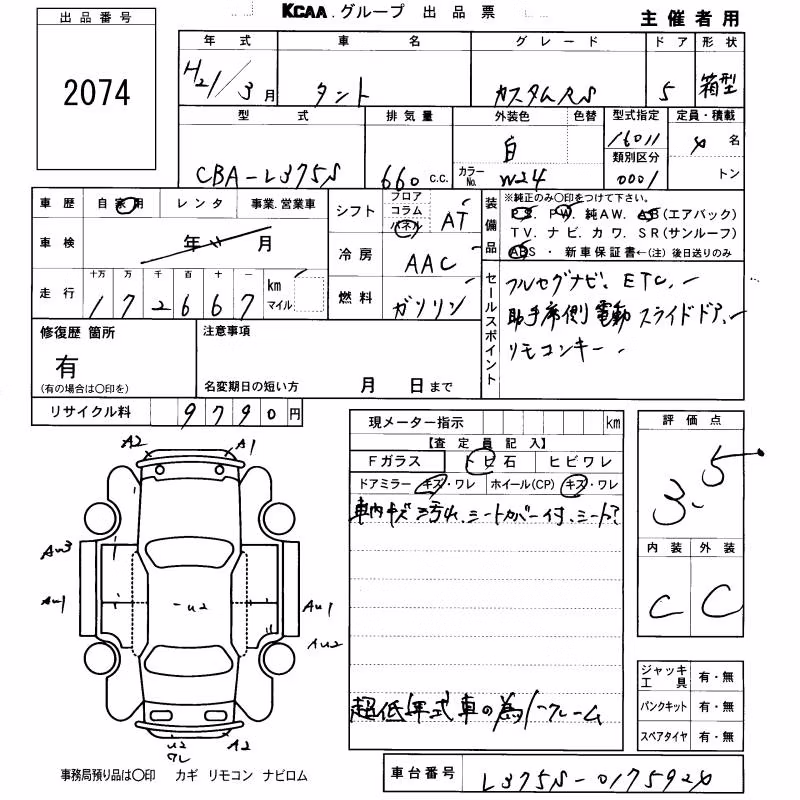 KCAA.グループ 出品票
主催者用
出品番号
2074
年式 車名 グレード ドア 形状
H21/3月 タント カスタムRS 5 箱型
型式 排気量 外装色 色替 型式指定 定員・積載
CBA-L375S 660 c.c. 白 カラーNo. W24 16011 4 名
類別区分
0001 トン
車歴 自家用 レンタ 事業.営業車
車検 年 月
走行 十万 万 千 百 十 一
172667 km マイル
シフト フロア コラム パネル AT
冷房 AAC
燃料 ガソリン
装備品
※純正のみ〇印をつけて下さい。
P.S. PW. 純AW. AB(エアバック)
TV. ナビ. カワ. SR(サンルーフ)
ABS ・ 新車保証書←(注) 後日送りのみ
セールスポイント
フルセグナビ、ETC、
助手席側電動スライドドア、
リモコンキー
修復歴 箇所
有
(有の場合は〇印を)
注意事項
名変期日の短い方 月 日まで
リサイクル料 9790円
現メーター指示 km
【査定員記入】
Fガラス トビ石 ヒビワレ
ドアミラー キズ・ワレ ホイール(CP) キズ・ワレ
車内キズ汚れ、シートカバー付、シート?
超低年式車の為ノークレーム
評価点
3.5
内装 外装
C C
ジャッキ工具 有・無
パンクキット 有・無
スペアタイヤ 有・無
A2 A1
AU3
AU1 U2 AU1
AU2
U2 A2
ワレ
事務局預り品は〇印 カギ リモコン ナビロム
車台番号 L375S-0175924